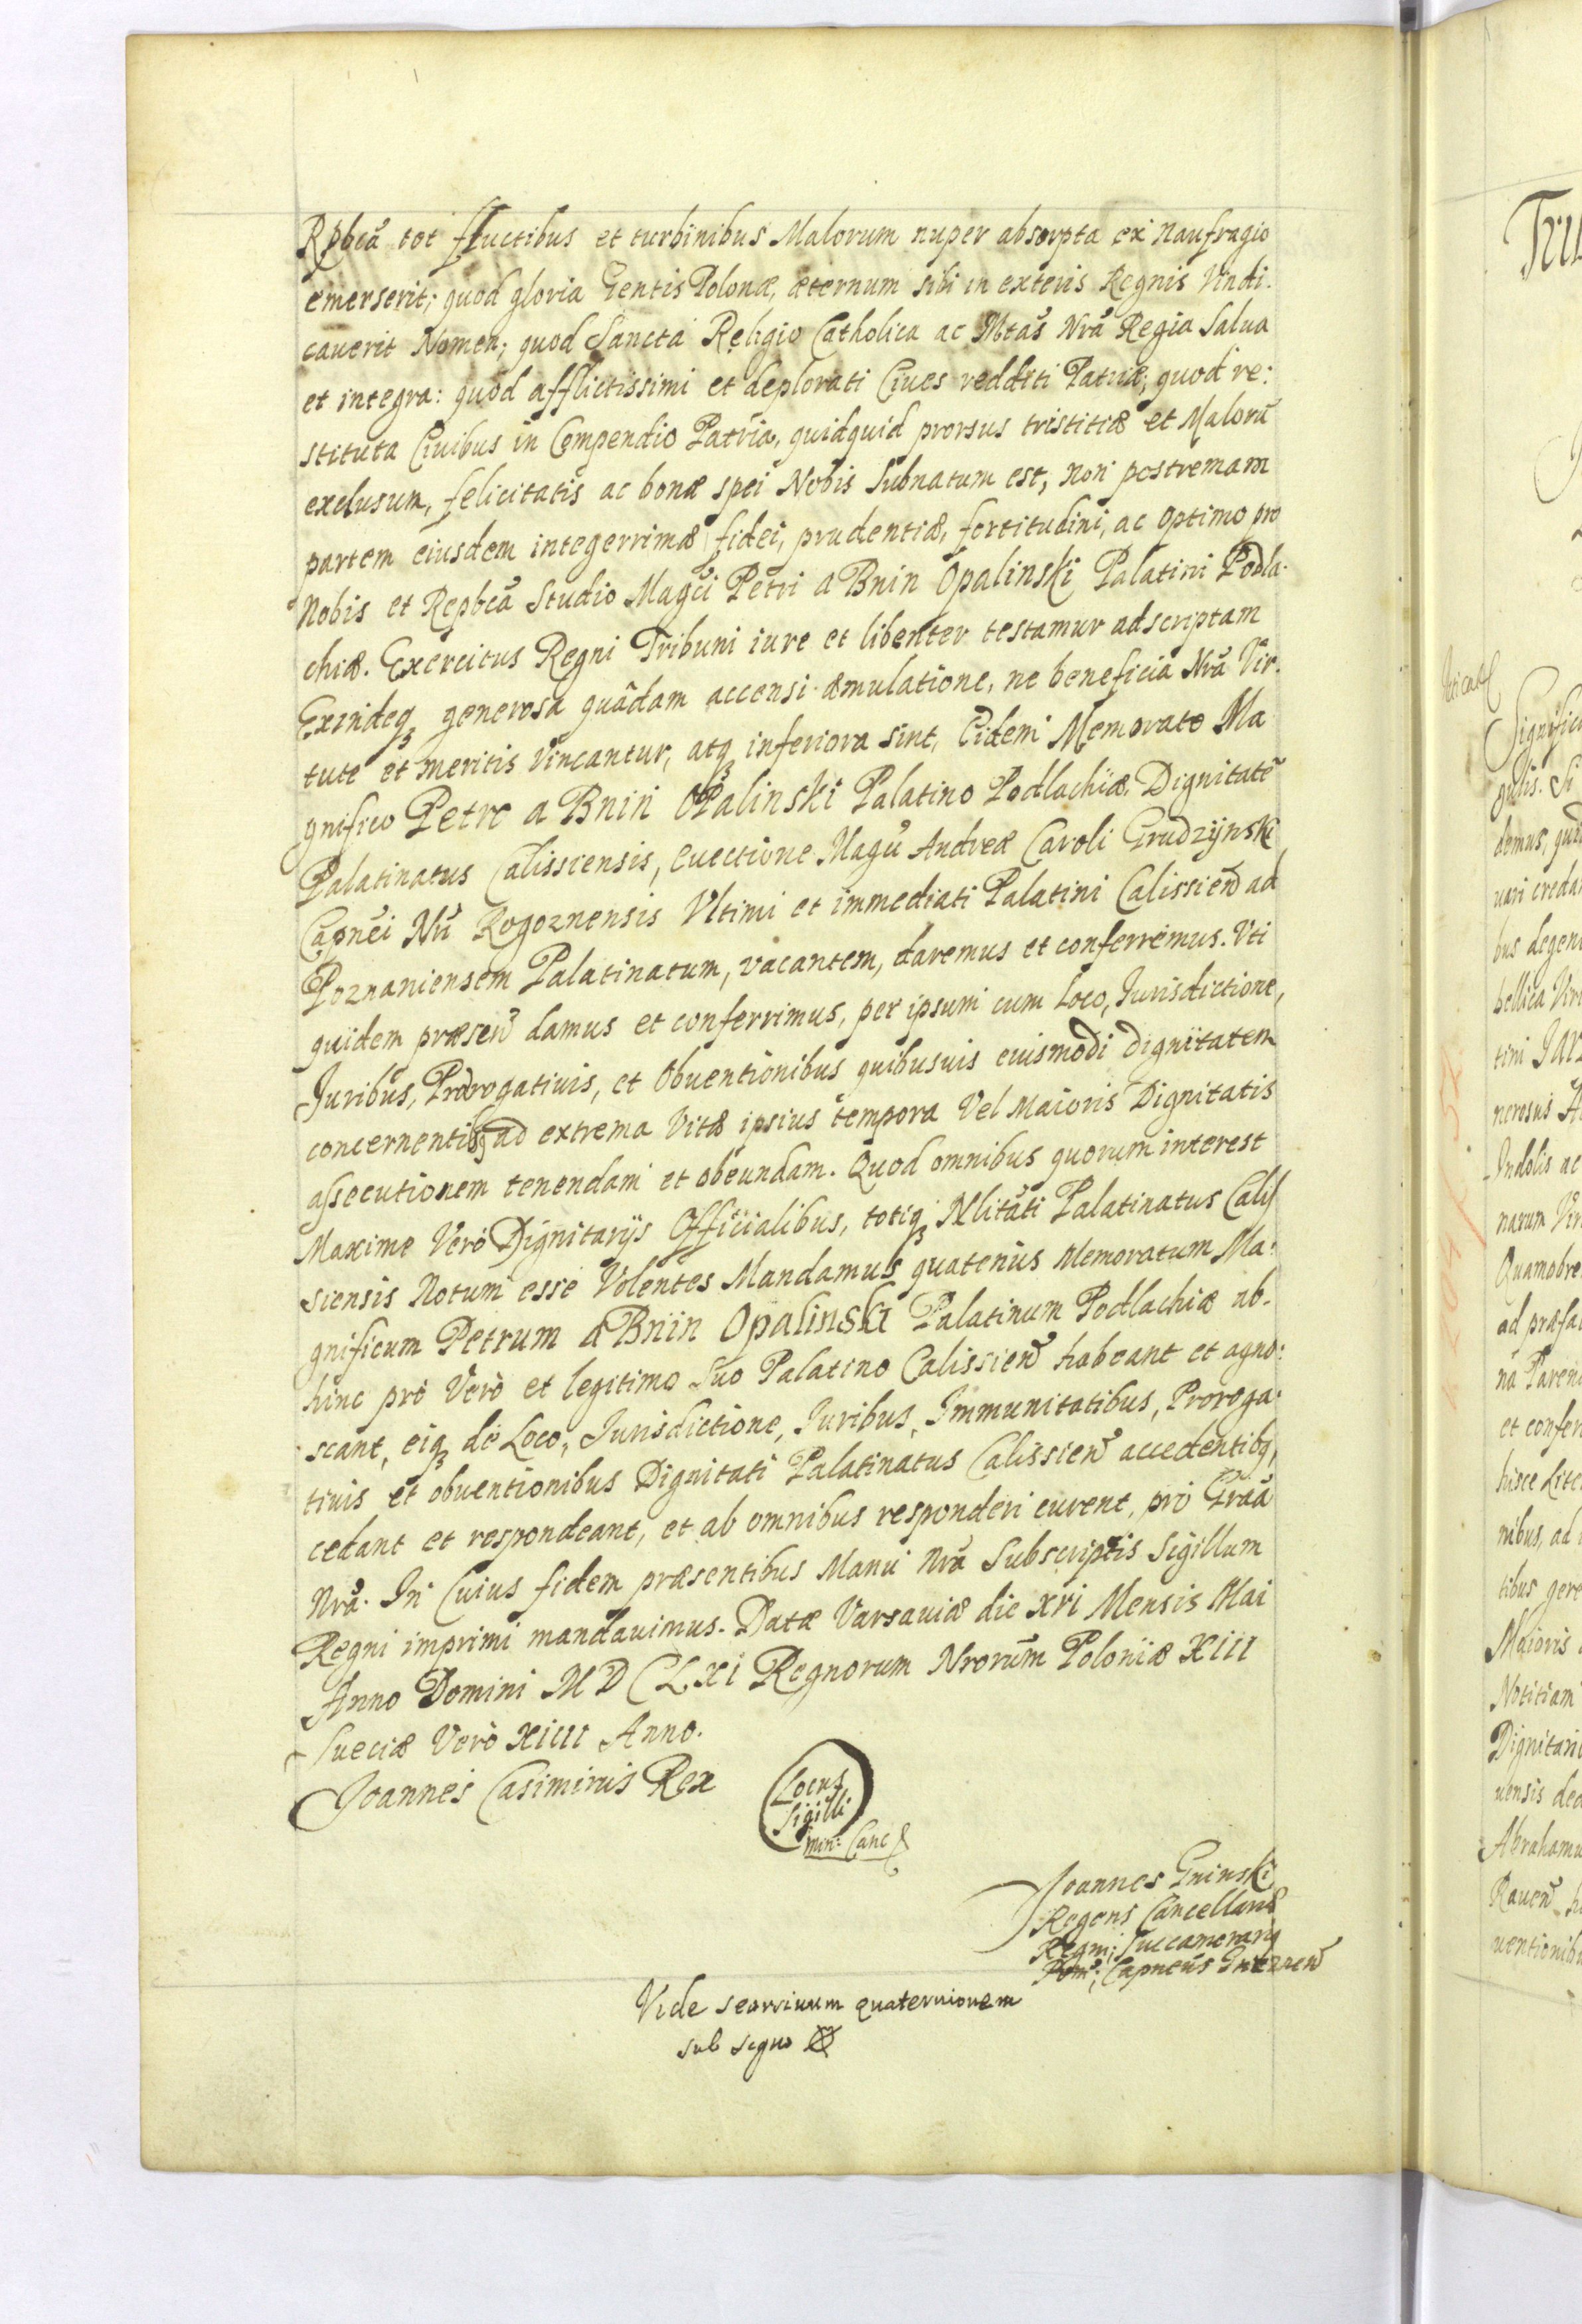 Rpbca tot fluctibus et turbinibus Malorum nuper absorpta ex Naufragio
emerserit; quod gloria Gentis Polonæ, æternum sibi in exteris Regnis Vindi.
cauerit Nomen; quod Sancta Religio Catholica ac Mtas Nra Regia Salua
et integra: quod afflictissimi et deplorati Ciues redditi Patriæ; quod re:
stituta Ciuibus in Compendio Patria, quidquid prorsus tristitiæ et Maloru
exclusum, felicitatis ac bonæ spei Nobis Subnatum est, non postremam
partem eiusdem integerrimæ fidei, prudentiæ, fortitudini, ac optimo pro
Nobis et Repbca Studio Magci Petri a Bnin Opalinski Palatini Podla.
chiæ. Exercitus Regni Tribuni iure et libenter testamur adscriptam
Exindeq₃ generosa quâdam accensi æmulatione, ne beneficia Nra Vir.
tute et meritis Vincantur, atq₃ inferiora sint, Eidem Memorato Ma
gnifico Petro a Bnin OPalinski Palatino Podlachiæ. Dignitate
Palatinatus Calissiensis, euectione Magci Andreæ Caroli Grudzÿnski
Capnei Nri Rogoznensis Vltimi et immediati Palatini Calissien ad
Poznaniensem Palatinatum, vacantem, daremus et conferremus. Vti
quidem præsen damus et conferrimus, per ipsum cum Loco, Jurisdictione,
Juribus, Prærogatiuis, et Obuentionibus quibusuis eiusmodi dignitatem
concernentib₃ ad extrema Vitæ ipsius tempora Vel Maioris Dignitatis
assecutionem tenendam et obeundam. Quod omnibus quorum interest
Maxime Verò Dignitarÿs Officialibus, totiq₃ Nlitati Palatinatus Calis
siensis Notum esse Volentes Mandamus quatenus Memoratum Ma:
gnificum Petrum a Bnin Opalinski Palatinum Podlachiæ ab.
hinc prò Verò et legitimo Suo Palatino Calissien habeant et agno:
scant, eiq₃ de Loco, Jurisdictione, Juribus, Immunitatibus, Proroga:
tiuis et obuentionibus Dignitati Palatinatus Calissien accedentibq,
cedant et respondeant, et ab omnibus responderi curent, prò Graa
Nra. In Cuius fidem præsentibus Manu Nra Subscriptis Sigillum
Regni imprimi mandauimus. Datæ Varsauiæ die XVI Mensis Mai
Anno Domini M D CLXI Regnorum Nrorum Poloniæ XIII
Sueciæ Verò XIIII Anno.
Joannes Casimirus Rex
Locus
Sigilli
min: Canc
Joannes Gninski
Regens Cancellariæ
Regni, Succamerariq
Pom: Capneus Gnezneñ
Vide
quaternionem
sub signo